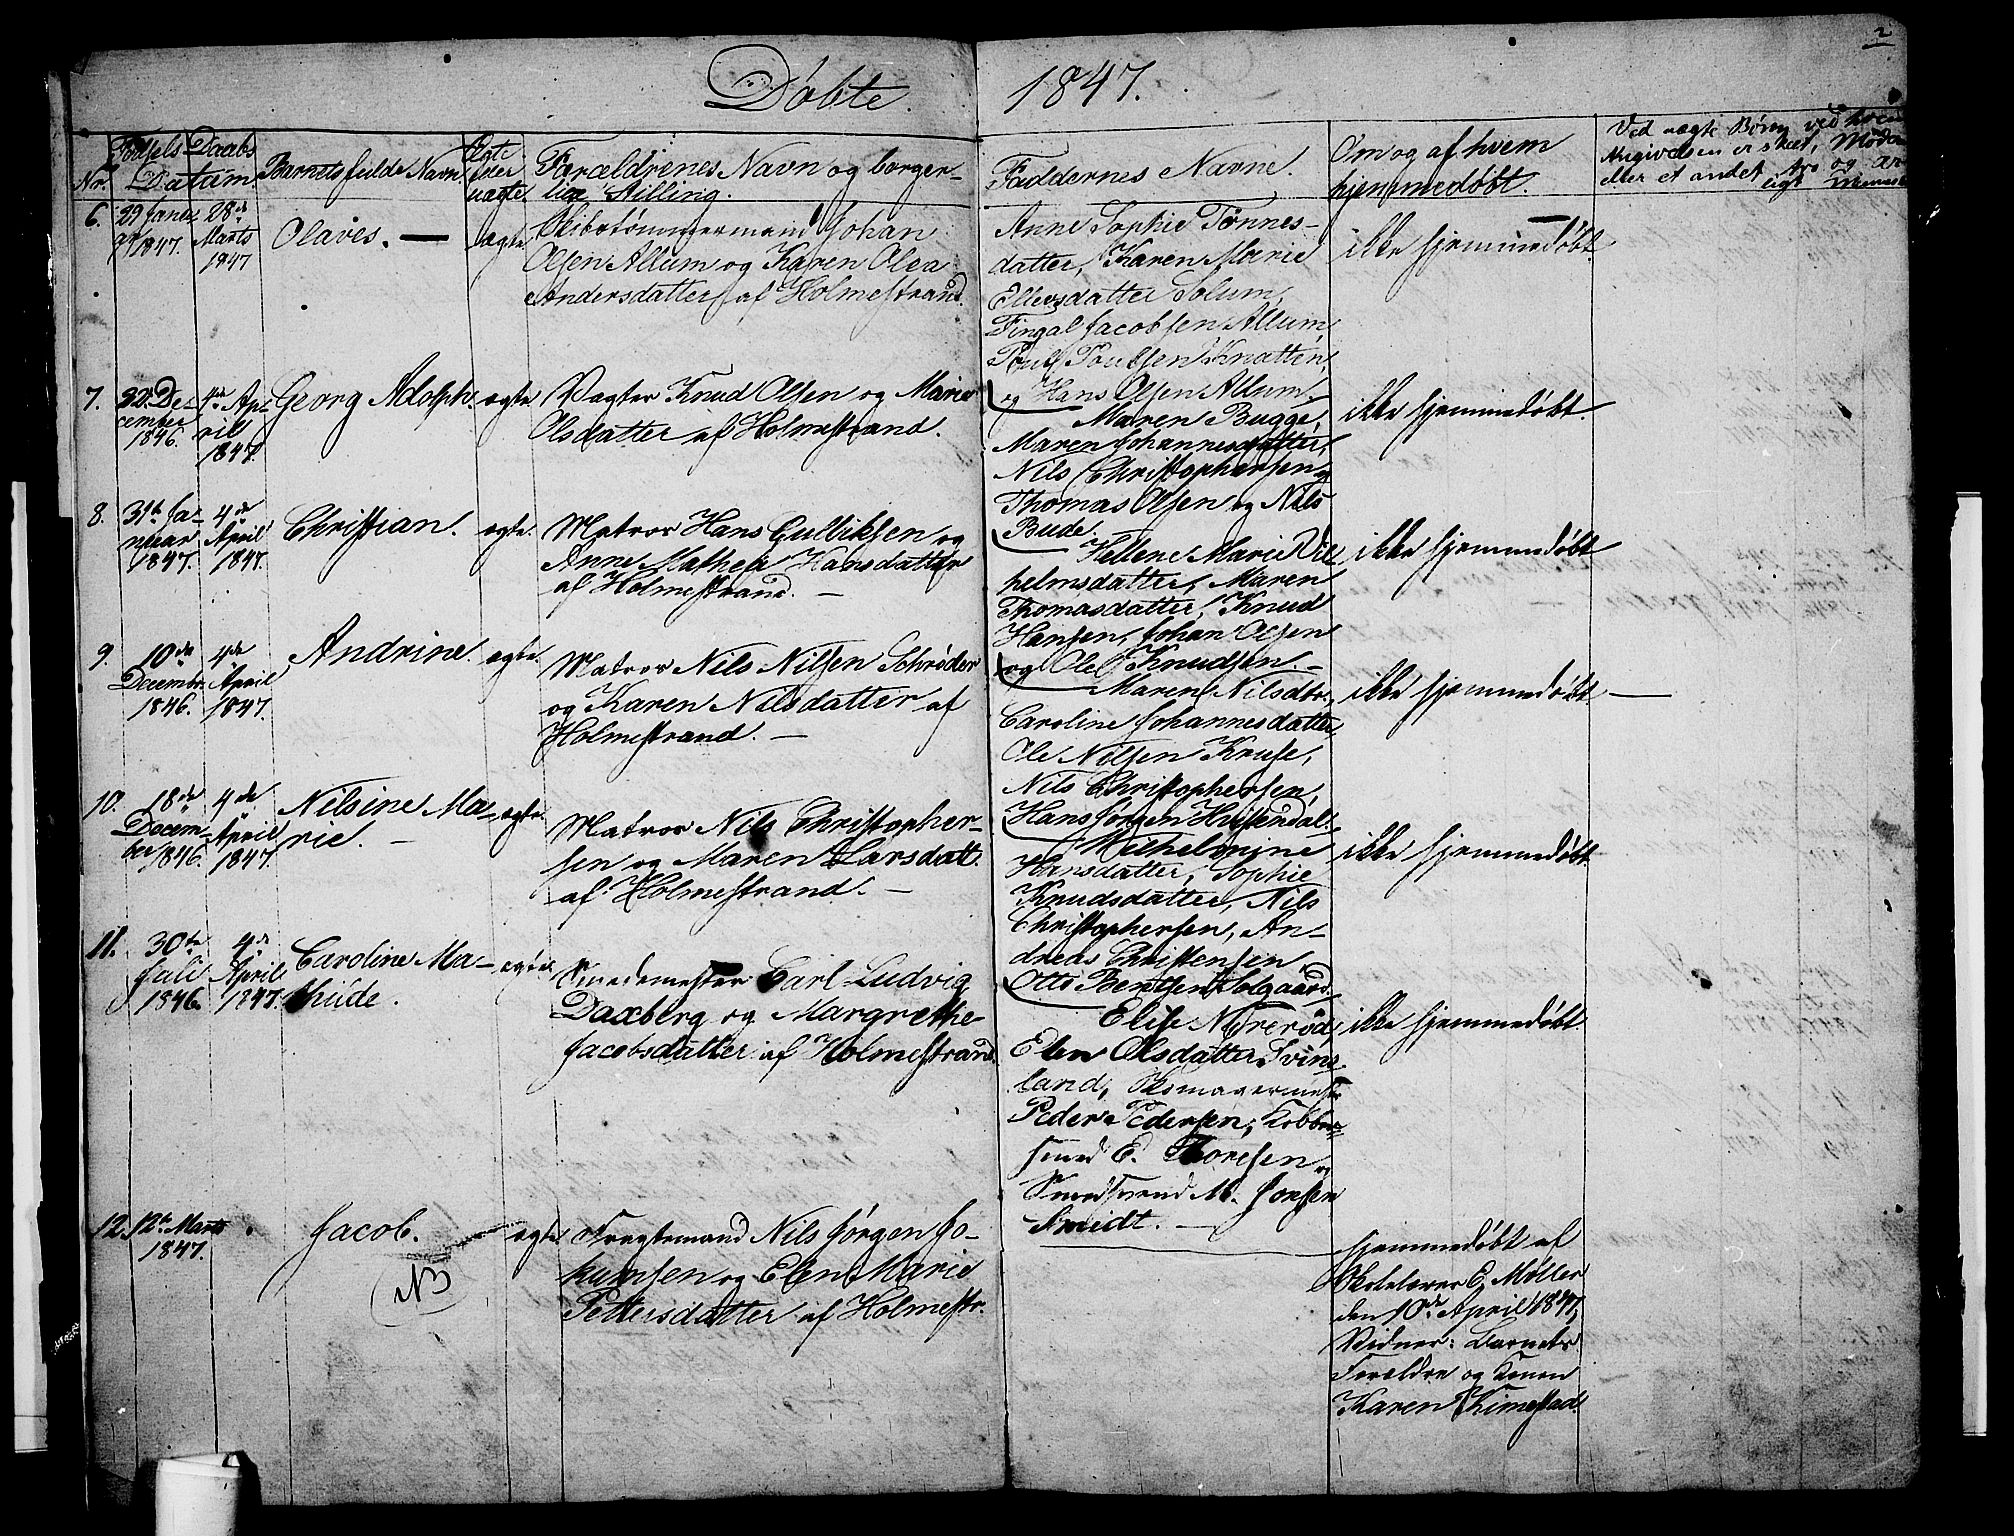 2
Døbte 1847.
Nr.
Fødsels Daabs
Datum
Barnets fulde Navn.
Ægte
eller
uægte.
Forældrenes Navn og borger-
lige Stilling.
Faddernes Navne.
Om og af hvem
hjemmedøbt.
Ved uægte Børn ved hvem
Angivelsen er skeet, Moder
eller et andet tro og
6.
29 Janu
ar 1847.
28de
Marts
1847
Olaves. —
ægte.
Skibstømmermand Johan
Olsen Allum og Karen Olea
Andersdatter af Holmestrand.
Anne Sophie Tønnes-
datter, Karen Marie
Ellevsdatter Solum,
Fingal Jacobsen Allum,
Poul Poulsen Knatten,
og Hans Olsen Allum.
ikke hjemmedøbt.
7.
22 De-
cember
1846.
4de Ap-
ril
1847.
Georg Adolph.
ægte.
Vægter Knud Olsen og Maria
Olsdatter af Holmestrand.
Maren Bugge,
Maren Johannesdatter,
Nils Christophersen,
Thomas Olsen og Nils
Bude.
ikke hjemmedøbt.
8.
31te Ja-
nuar
1847.
4de
April
1847.
Christian.
ægte.
Matros Hans Gulliksen og
Anne Mathea Hansdatter
af Holmestrand. —
Hellene Marie Vil
helmsdatter, Maren
Thomasdatter, Knud
Hansen, Johan Olsen
og Ole Knudsen. —
ikke hjemmedøbt
9.
10de
Decembr.
1846.
4de
April
1847.
Andrine.
ægte.
Matros Nils Nilsen Schrøder
og Karen Nilsdatter af
Holmestrand. —
Maren Nilsdtr,
Caroline Johannesdatter,
Ole Nilsen Kruse,
Nils Christophersen,
Hans Jørgen
ikke hjemmedøbt. —
10.
18de
Decem-
ber 1846.
4de
April
1847.
Nilsine Ma-
rie. —
ægte.
Matros Nils Christopher-
sen og Maren Larsdatt.
af Holmestrand. —
Wilhelmine
Hansdatter, Sophie
Knudsdatter, Nils
Christophersen, An-
dreas Christensen
Otto Berntsen Solgaard.
ikke hjemmedøbt.
11.
30te
Juli
1846.
4de
April
1847.
Caroline Ma-
thilde.
ægte.
Smedemester Carl Ludvig
Daxberg og Margrethe
Jacobsdatter af Holmestrand.
Elise Nøreröd,
Elen Olsdatter Svins-
land, Skomagermester
Peder Pedersen, Kobber-
smed E. Thoresen og
Smedsvend M. Jonsen
Smidt. —
ikke hjemmedøbt.
12.
12te Marts
1847.
Jacob.
NB
ægte.
Fragtemand Nils Jørgen Jo-
kumsen og Elen Marie
Pettersdatter af Holmestr.
hjemmedøbt af
Skolelærer E. Møller
den 10de April 1847,
Vidner: Barnets
Forældre og Konen
Karen Kimestad.